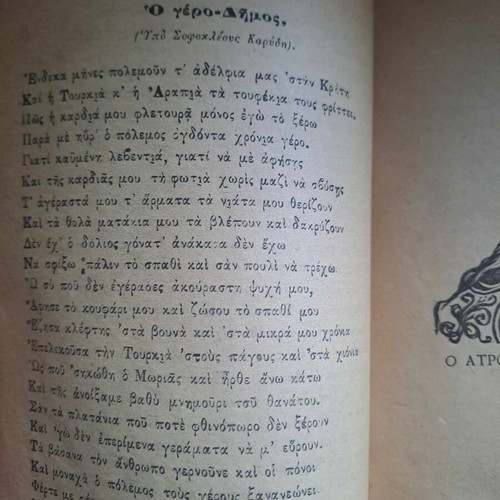 Ὁ γέρο-Δῆμος,
(Ὑπὸ Σοφοκλέους Καρύδη).
Ἕνδεκα μῆνες πολεμοῦν τ' ἀδέλφια μας 'στὴν Κρήτη
Καὶ ἡ Τουρκιὰ κ' ἡ Ἀραπιὰ τὰ τουφέκια τους φρίττει.
Πῶς ἡ καρδιά μου φλετουρᾷ μόνος ἐγὼ τὸ ξέρω
Παρὰ μὲ ηὗρ' ὁ πόλεμος ὀγδόντα χρόνια γέρο.
Γιατί καϋμένη λεβεντιά, γιατί νὰ μὲ ἀφήσῃς
Καὶ τῆς καρδιᾶς μου τὴ φωτιὰ χωρὶς μαζὶ νὰ σβύσῃς
Τ' ἀγέραστά μου τ' ἄρματα τὰ νιᾶτα μου θερίζουν
Καὶ τὰ θολὰ ματάκια μου τὰ βλέπουν καὶ δακρύζουν
Δὲν ἔχ' ὁ δόλιος γόνατ' ἀνάκαρα δὲν ἔχω
Νὰ σφίξω πάλιν τὸ σπαθὶ καὶ σὰν πουλὶ νὰ τρέχω.
Ὦ σὺ ποῦ δὲν ἐγέρασες ἀκούραστη ψυχή μου,
Ἄφησε τὸ κουφάρι μου καὶ ζώσου τὸ σπαθί μου
Ἔζησα κλέφτης 'στὰ βουνὰ καὶ 'στὰ μικρά μου χρόνια
Ἐπελικοῦσα τὴν Τουρκιὰ 'στοὺς πάγους καὶ 'στὰ χιόνια
Ὡς ποῦ 'σηκώθη ὁ Μωριᾶς καὶ ἦρθε ἄνω κάτω
Καὶ τῆς ἀνοίξαμε βαθὺ μνημοῦρι τοῦ θανάτου.
Σὰν τὰ πλατάνια ποῦ ποτὲ φθινόπωρο δὲν ξέρουν
Κ' ἐγὼ δὲν ἐπερίμενα γεράματα νὰ μ' εὕρουν.
Τὰ βάσανα τὸν ἄνθρωπο γερνοῦνε καὶ οἱ πόνοι
Καὶ μοναχὰ ὁ πόλεμος τοὺς γέρους ξανανεώνει.
Φέρτε μὲ
Ο ΑΤΡΟ